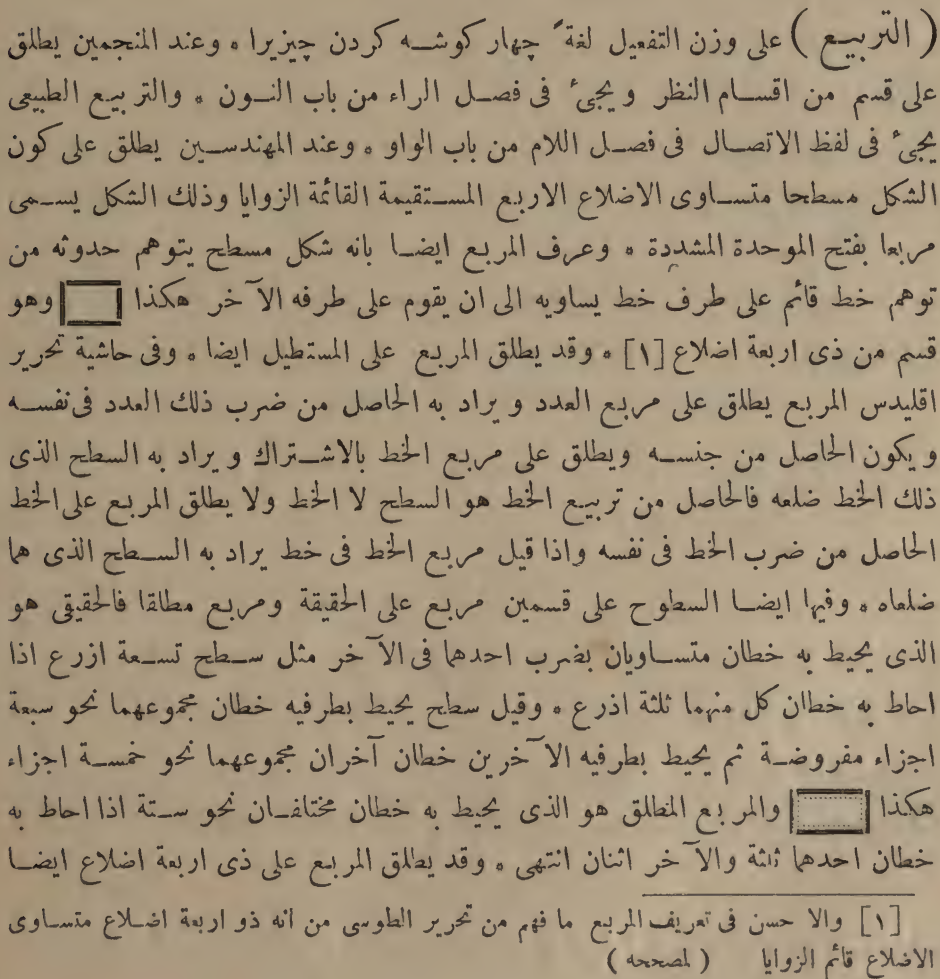 ( التربيع ) على وزن التفعيل لغة ً چهار كوشه كردن چيزيرا ٠ وعند المنجمين يطلق
على قسم من اقسام النظر ويجىء فى فصل الراء من باب النون ٠ والتربيع الطبيعى
يجىء فى لفظ الاتصال فى فصل اللام من باب الواو ٠ وعند المهندسين يطلق على كون
الشكل مسطحا متساوى الاضلاع الاربع المستقيمة القائمة الزوايا وذلك الشكل يسمى
مربعا بفتح الموحدة المشددة ٠ وعرف المربع ايضا بانه شكل مسطح يتوهم حدوثه من
توهم خط قائم على طرف خط يساويه الى ان يقوم على طرفه الآخر هكذا وهو
قسم من ذى اربعة اضلاع [١] ٠ وقد يطلق المربع على المستطيل ايضا ٠ وفى حاشية تحرير
اقليدس المربع يطلق على مربع العدد ويراد به الحاصل من ضرب ذلك العدد فى نفسه
ويكون الحاصل من جنسه ويطلق على مربع الخط بالاشتراك ويراد به السطح الذى
ذلك الخط ضلعه فالحاصل من تربيع الخط هو السطح لا الخط ولا يطلق المربع على الخط
الحاصل من ضرب الخط فى نفسه واذا قيل مربع الخط فى خط يراد به السطح الذى هما
ضلعاه ٠ وفيها ايضا السطوح على قسمين مربع على الحقيقة ومربع مطلقا فالحقيقى هو
الذى يحيط به خطان متساويان بضرب احدهما فى الآخر مثل سطح تسعة ازرع اذا
احاط به خطان كل منهما ثلثة اذرع ٠ وقيل سطح يحيط بطرفيه خطان مجموعهما نحو سبعة
اجزاء مفروضة ثم يحيط بطرفيه الآخرين خطان آخران مجموعهما نحو خمسة اجزاء
هكذا والمربع المطلق هو الذى يحيط به خطان مختلفان نحو ستة اذا احاط به
خطان احدهما ثلثة والآخر اثنان انتهى ٠ وقد يطلق المربع على ذى اربعة اضلاع ايضا
[١] والا حسن فى تعريف المربع ما فهم من تحرير الطوسى من انه ذو اربعة اضلاع متساوى
الاضلاع قائم الزوايا ( لمصححه )